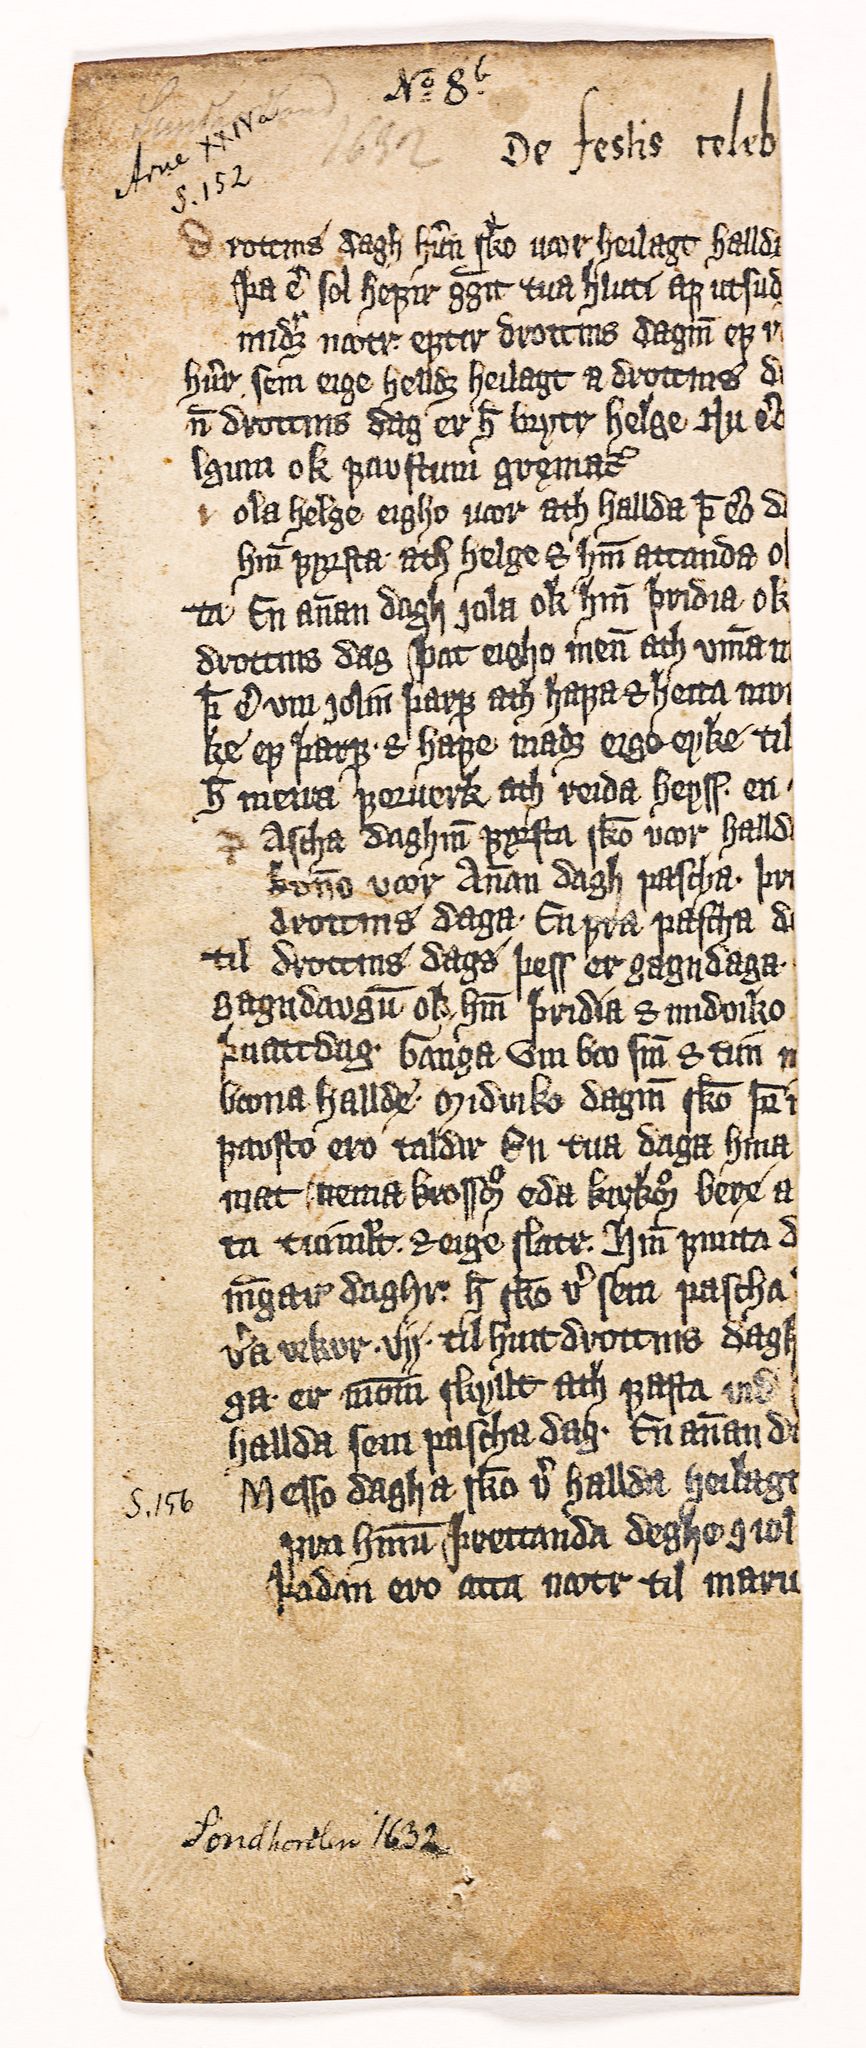 Nº 8b
Arne XXIVa
S. 152
1632
De festis celeb
Drottins dagh hũn sko uær heilagt halldi
þa er sol hefir ggit tua hluti af utsud
midz nætr eptir drottins dagin̄ ef
huer sem eige helldz heilagt a drottins d
n̄ drottins dag er h̄ brytr helge Nu er
lgum ok faustum
iola helge eigho uær ath hallda þ̄ er d
hin̄ fyrsta ath helge & hin̄ attanda o
ta En an̄an dagh jola ok hin̄ þridia ok
drottins dag þat eigho men̄ ath vm̄a
þ̄ er vm jolin̄ þarf ath hafa & heita
ke ef þarf & hafe madz eige eyke til
h̄ meira foruerk ath reida heyss en
Pascha daghin̄ fyrsta sko vær halld
uær An̄an dagh pascha þri
drottins daga En fra pascha d
til drottins dags þess er gagndaga
Gagndaugū ok hin̄ þridia & miduiko
þuattdag Ganga um boo sin̄ & tun
boona hallde Miduiko dagin̄ sko þ̄r i
fausto ero taldir En tua daga hina
mat nema krossom eda kirkom bere a
ta & eige slatr Hin̄ fimta d
m̄gar daghr h̄ sko v̄ sem pascha
v̄a vikor vij til huit drottins dagh
ga er monm skyllt ath fasta vid
hallda sem pascha dag En an̄an da
S. 156
Messo dagha sko v̄ hallda heilagt
fra hinū þrettanda deghe j iol
þadan ero atta nætr til maru
Söndhordlen 1632